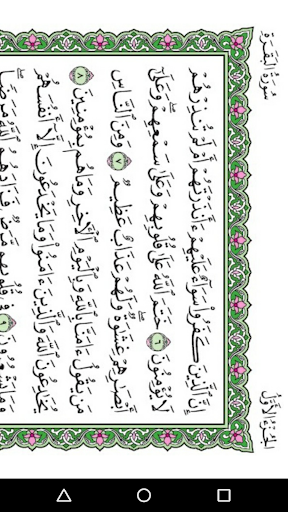 سُورَةُ البَقَرَةِ
الجُزْءُ الأَوَّلُ
إِنَّ ٱلَّذِينَ كَفَرُوا۟ سَوَآءٌ عَلَيْهِمْ ءَأَنذَرْتَهُمْ أَمْ لَمْ تُنذِرْهُمْ
لَا يُؤْمِنُونَ ٦ خَتَمَ ٱللَّهُ عَلَىٰ قُلُوبِهِمْ وَعَلَىٰ سَمْعِهِمْ وَعَلَىٰٓ
أَبْصَـٰرِهِمْ غِشَـٰوَةٌ وَلَهُمْ عَذَابٌ عَظِيمٌ ٧ وَمِنَ ٱلنَّاسِ
مَن يَقُولُ ءَامَنَّا بِٱللَّهِ وَبِٱلْيَوْمِ ٱلْـَٔاخِرِ وَمَا هُم بِمُؤْمِنِينَ ٨
يُخَـٰدِعُونَ ٱللَّهَ وَٱلَّذِينَ ءَامَنُوا۟ وَمَا يَخْدَعُونَ إِلَّآ أَنفُسَهُمْ
وَمَا يَشْعُرُونَ ٩ فِى قُلُوبِهِم مَّرَضٌ فَزَادَهُمُ ٱللَّهُ مَرَضًا